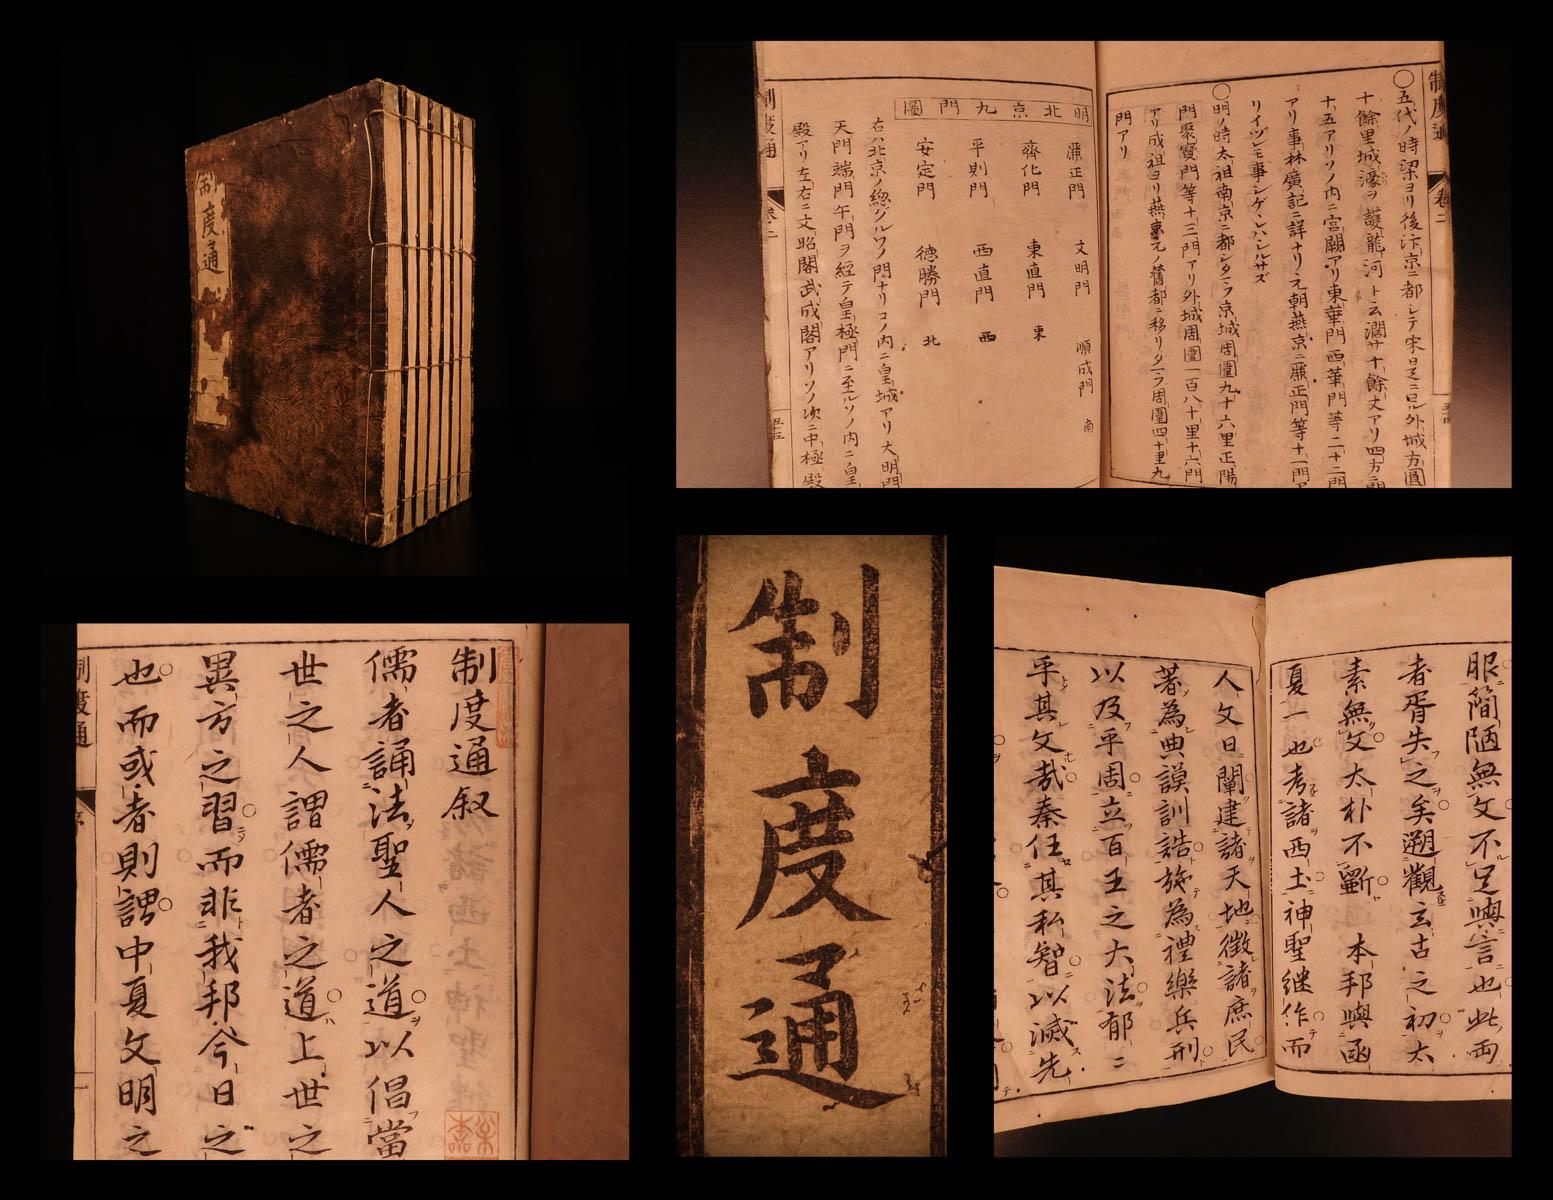 制度通
制度通
卷二
五十四
〇五代ノ時梁ヨリ後汴京ニ都シテ宋日是ニ因ル外城方圓
十餘里城濠ヲ護龍河ト云濶サ十餘丈アリ四方二門
十五アリソノ内ニ宮闕アリ東華門西華門等二十二門
アリ事林廣記ニ詳ナリ元朝燕京ニ麗正門等十一門ア
リイヅレモ事シゲケレバシルサズ
〇明ノ時太祖南京ニ都シタマフ京城周圍九十六里正陽
門聚寶門等十三門アリ外城周圍一百八十里十六門
アリ成祖ヨリ燕京元ノ舊都ニ移リタマフ周圍四十里九
門アリ
明北京九門圖
麗正門 文明門 順成門 南
齊化門 東直門 東
平則門 西直門 西
安定門 德勝門 北
右ハ北京ノ總グルワノ門ナリコノ内ニ皇城アリ大明門
天門端門午門ヲ經テ皇極門ニ至ルソノ内ニ皇
殿アリ左右ニ文昭閣武成閣アリソノ次ニ中極殿
制度通
卷二
五十五
制度通叙
儒者誦法聖人之道以倡當
世之人謂儒者之道上世之
異方之習而非我邦今日之
也而或者則謂中夏文明之
制度通
序
一
制度通
服簡陋無文不足與言也此兩
者胥失之矣遡觀玄古之初太
素無文太朴不斵 本邦與函
夏一也考諸西土神聖継作而
人文日闡建諸天地徵諸庶民
著為典謨訓誥施為禮樂兵刑
以及乎周立百王之大法郁〻
乎其文哉秦任其私智以滅先